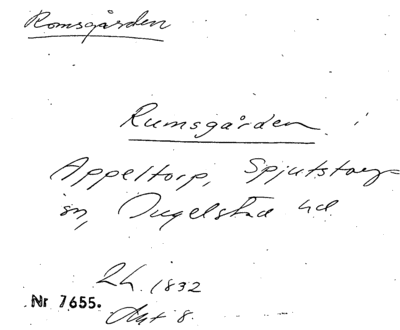 Romsgården
Rumsgården
Appeltorp, Spjutstorps
sn, Ingelstad hd.
Lh. 1832
Nr 7655.
Akt 8.